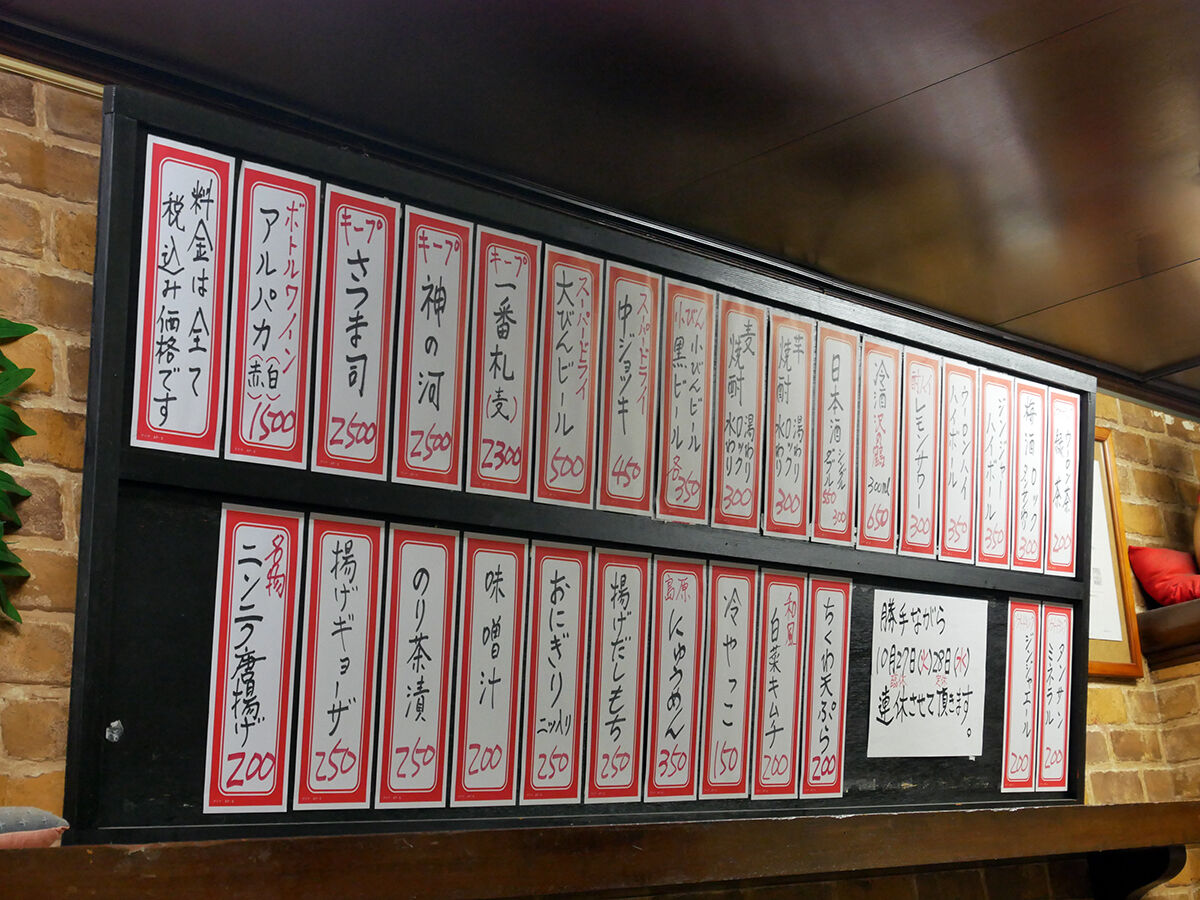 料金は全て
税込み価格です
ボトルワイン
アルパカ(赤)(白)
1500
キープ
さつま司
2500
キープ
神の河
2500
キープ
一番札(麦)
2300
スーパードライ
大びんビール
500
スーパードライ
中ジョッキ
450
小びん 小びんビール
黒ビール
各350
麦焼酎
湯わり
ロック
水わり
300
芋焼酎
湯わり
ロック
水わり
300
日本酒
シングル 200
ダブル 350
冷酒 沢鶴
300ml
650
酎ハイ
レモンサワー
300
ウーロンハイ
ハイボール
350
ジンジャー
ハイボール
350
梅酒 ロック
300
ウーロン茶
緑茶
200
名物
ニンニク唐揚げ
200
揚げギョーザ
250
のり茶漬
250
味噌汁
200
おにぎり
二ッ入り
250
揚げだしもち
250
島原
にゅうめん
350
冷やっこ
150
和風
白菜キムチ
200
ちくわ天ぷら
200
勝手ながら
10月27日(火)28日(水)
臨休 定休
連休させて頂きます。
ジンジャエール
200
タンサン
ミネラル
200